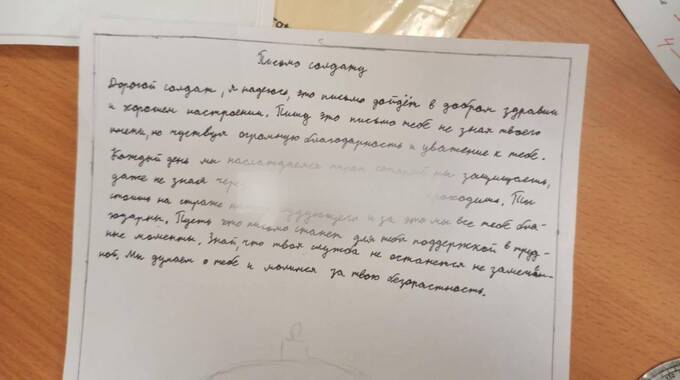 Письмо солдату
Дорогой солдат, я надеюсь, это письмо дойдёт в добром здравии
и хорошем настроении. Пишу это письмо тебе не зная твоего
имени, но чувствуя огромную благодарность и уважение к тебе.
Каждый день мы наслаждаемся ты защищаешь,
даже не зная проходишь. Ты
стоишь на страже будующего и за это мы все тебе бла-
годарны. Пусть это письмо станет для тебя поддержкой в труд-
ные моменты. Знай, что твоя служба не останется не замечен-
ной. Мы думаем о тебе и молимся за твою безопастность.